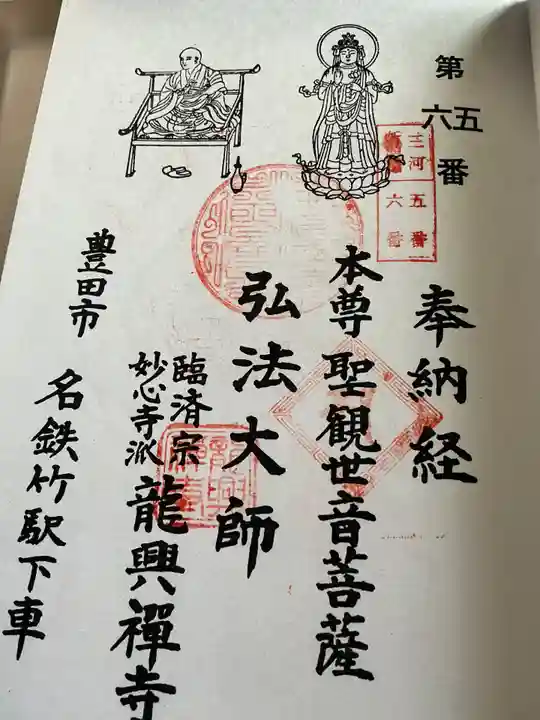 第五六番
三河
五番
六番
奉納経
本尊聖観世音菩薩
弘法大師
臨済宗
妙心寺派
龍興禅寺
豊田市
名鉄竹駅下車